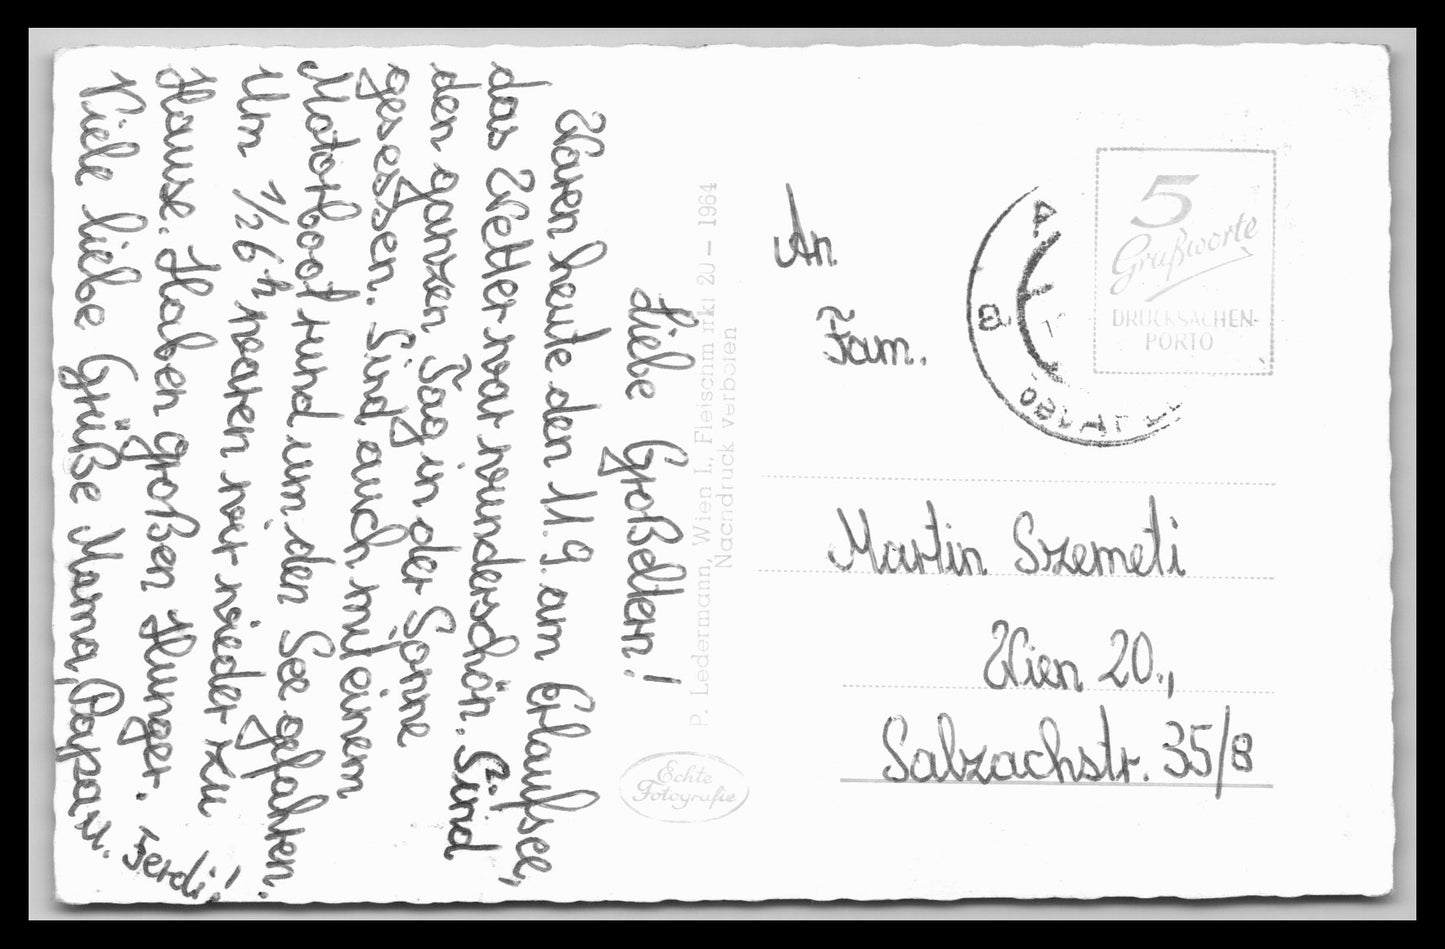 Liebe Großeltern!
Waren heute den 11.9. am Erlaufsee,
das Wetter war wunderschön. Sind
den ganzen Tag in der Sonne
gesessen. Sind auch mit einem
Motorboot rund um den See gefahren.
Um 1/26h waren wir wieder zu
Hause. Haben großen Hunger.
Viele liebe Grüße Mama, Papa u. Ferdi!
P. Ledermann, Wien I., Fleischmarkt 20 – 1964
Nachdruck verboten
Echte
Fotografie
An
Fam.
Martin Szemeti
Wien 20.,
Salzachstr. 35/8
5
Grußworte
DRUCKSACHEN-
PORTO